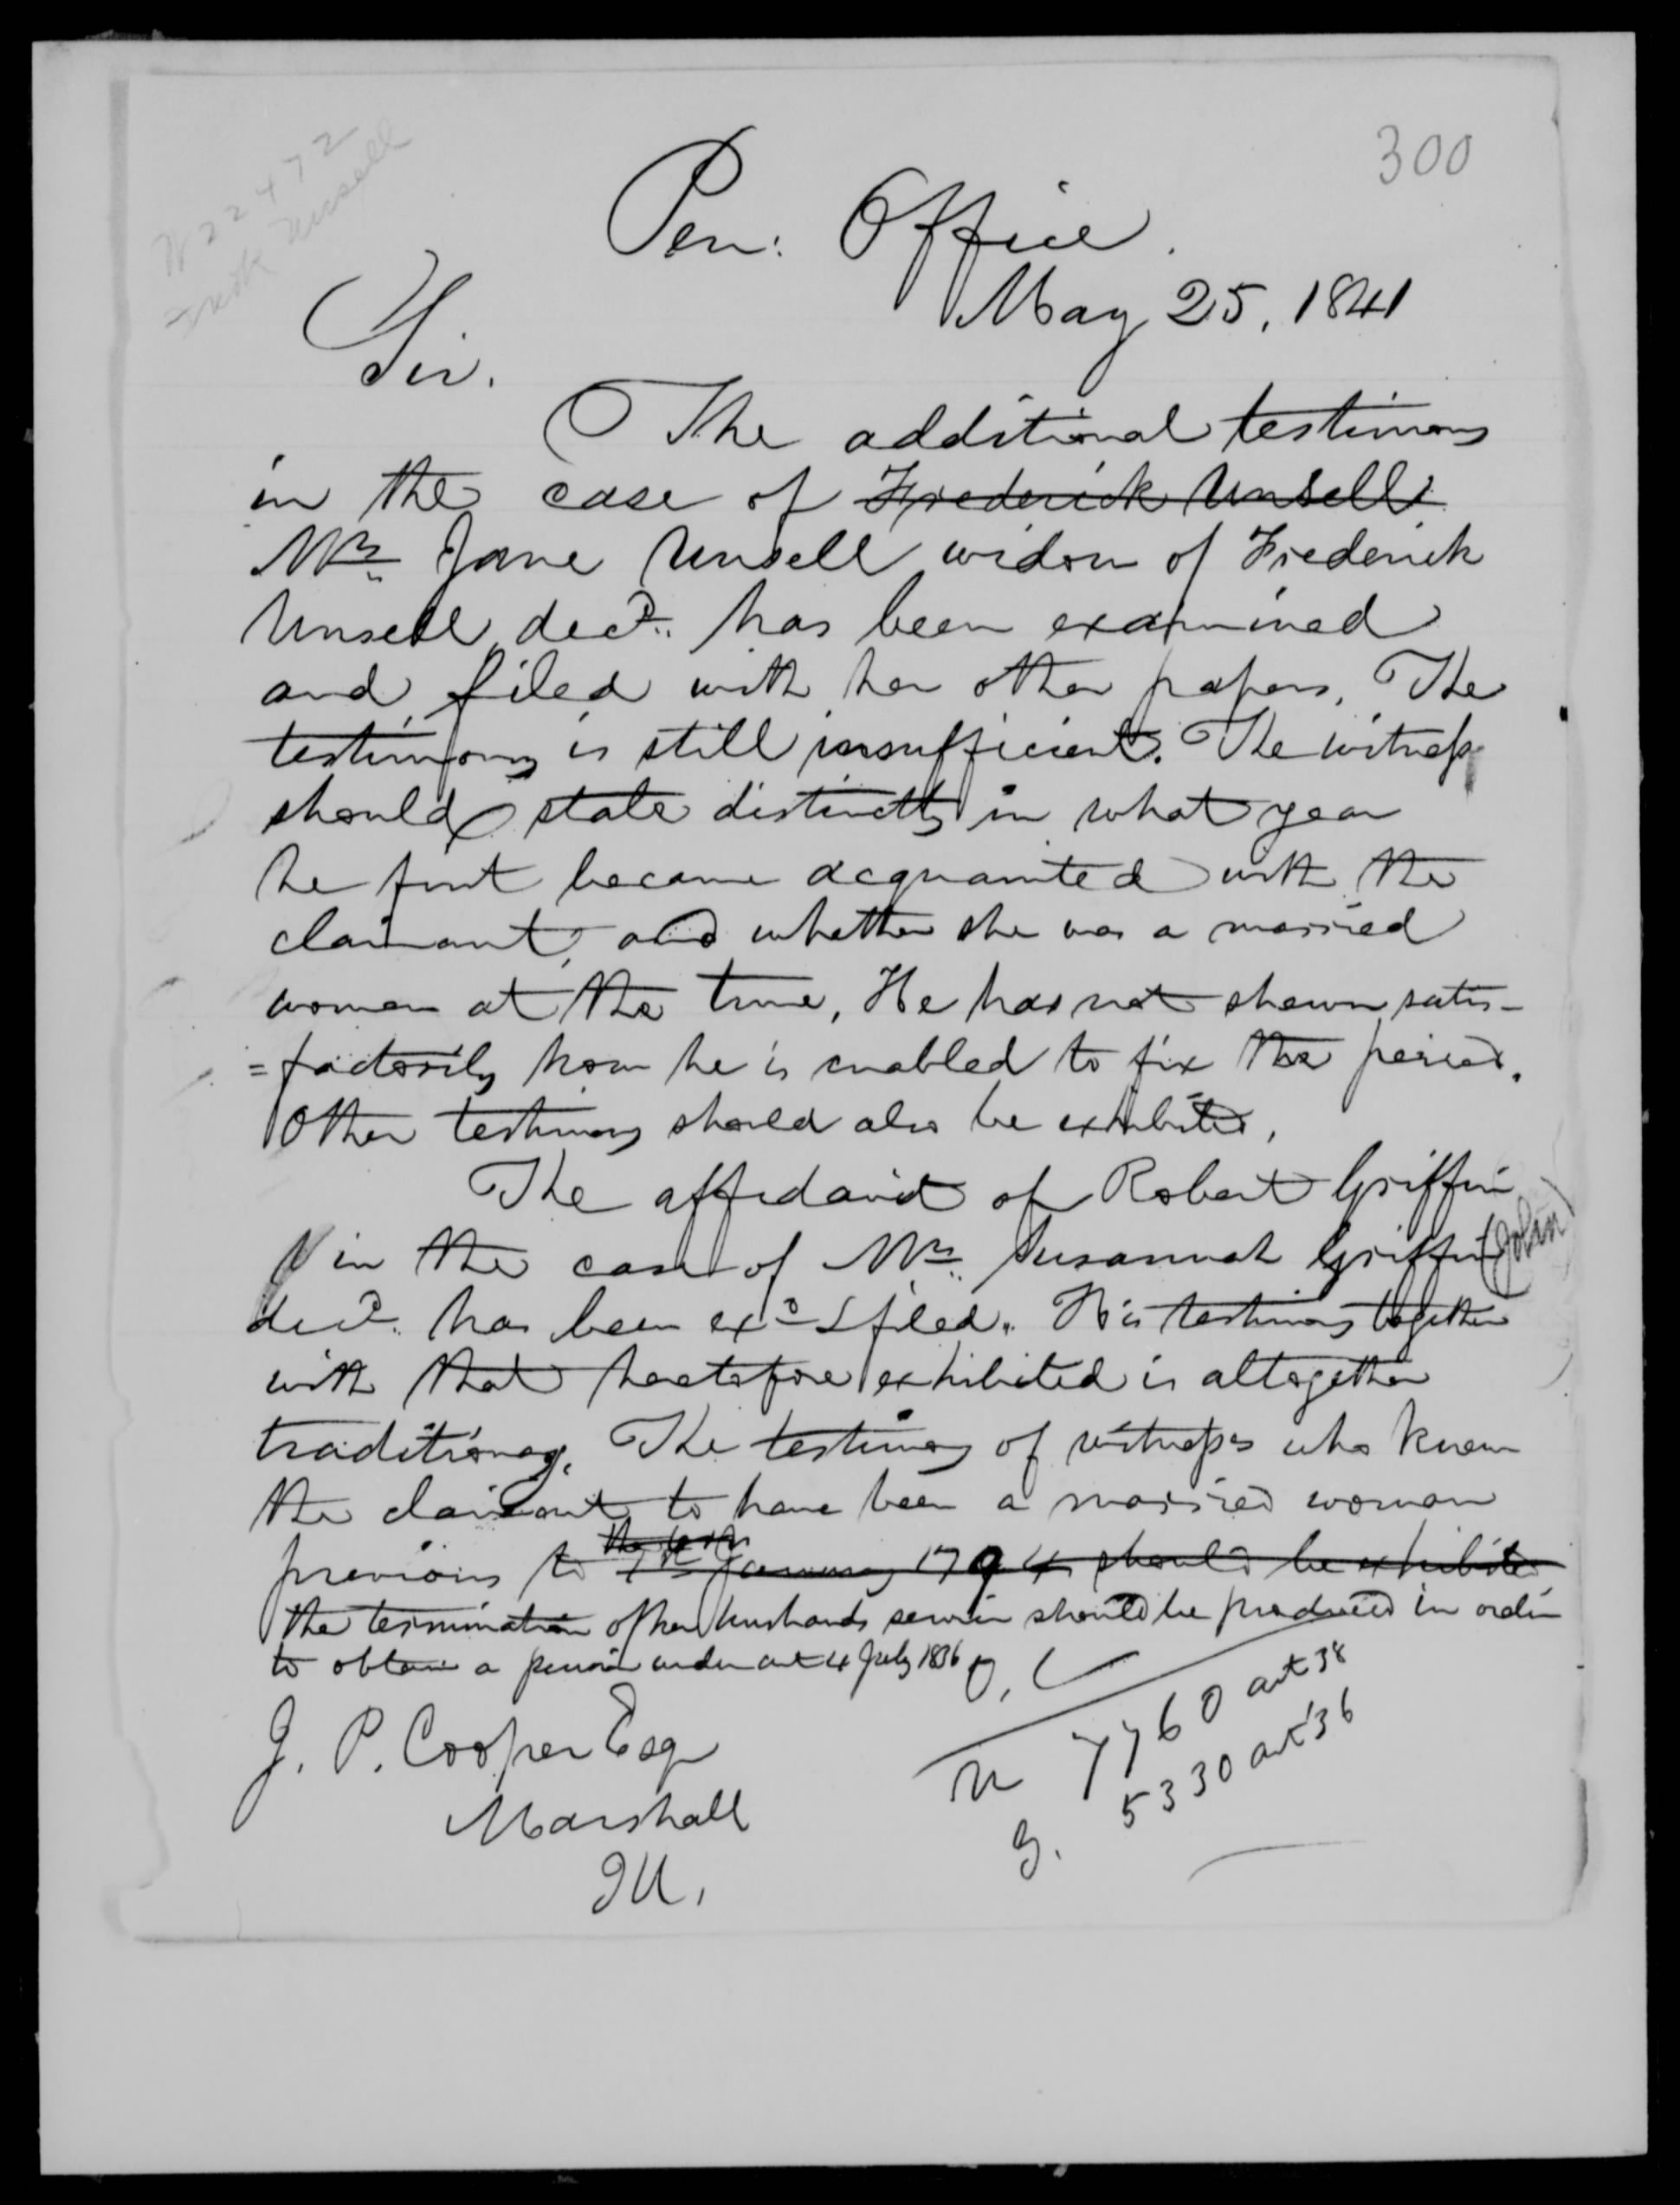 300
W 22472
Fredk Unsell
Pen: Office.
May 25, 1841
Sir.
The additional testimony
in the case of Frederick Unsell
Mrs. Jane Unsell widow of Frederick
Unsell decd. has been examined
and filed with her other papers. The
testimony is still insufficient. The witness
should state distinctly in what year
he first became acquainted with the
claimant, and whether she was a married
woman at the time. He has not shown satis-
=factorily how he is enabled to fix the period.
Other testimony should also be exhibited.
The affidavit of Robert Griffin
in the case of Mrs. Susannah Griffin (John)
decd. has been exd & filed. His testimony together
with that heretofore exhibited is altogether
traditionary. The testimony of witnesses who knew
the claimant to have been a married woman
previous to 1st January 1794 should be exhibited
the termination of her husbands service should be produced in order
to obtain a pension under act 4 July 1836
J. P. Cooper Esq
Marshall
Ill.
U 7760 act 38
G. 5330 act 36